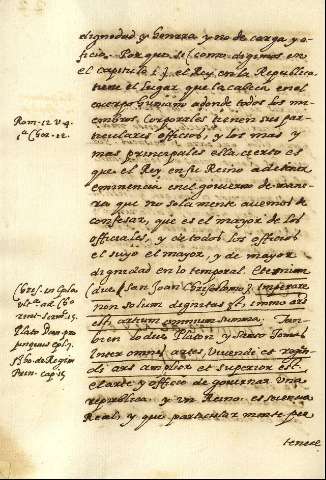 dignedad y honrra y no de carga y o-
ficio. Porque si (como diximos en
el capitulo 1.) el Rey en la Republica
tiene el lugar que la cabeça en el
cuerpo humano adonde todos los mi-
embros corporales tienen sus par-
ticulares officios, y los mas y
mas principales ella cierto es
que el Rey en su Reino
eminencia en el gouierno de mane-
ra que no solamente auemos de
confesar, que es el mayor de los
officiales, y de todos los officios
el suyo el mayor, y de mayor
dignedad en lo temporal. Etenim
(dize San Joan Chrisostomo) imperare
non solum dignitas est, immo ars
est, artium omnium summa. Tan-
bien lo dize Platon y Sancto Tomas
Inter omnes artes, viuendi et regen-
di ars amplior et superior est.
el arte y officio de gouernar vna
republica, y vn Reino es sciencia
Real, y que particularmente per
tenece
Rom. 12 v. 4.
1ª Chor. 12.
Chris. in
ad Cho
rint. 15.
Plato